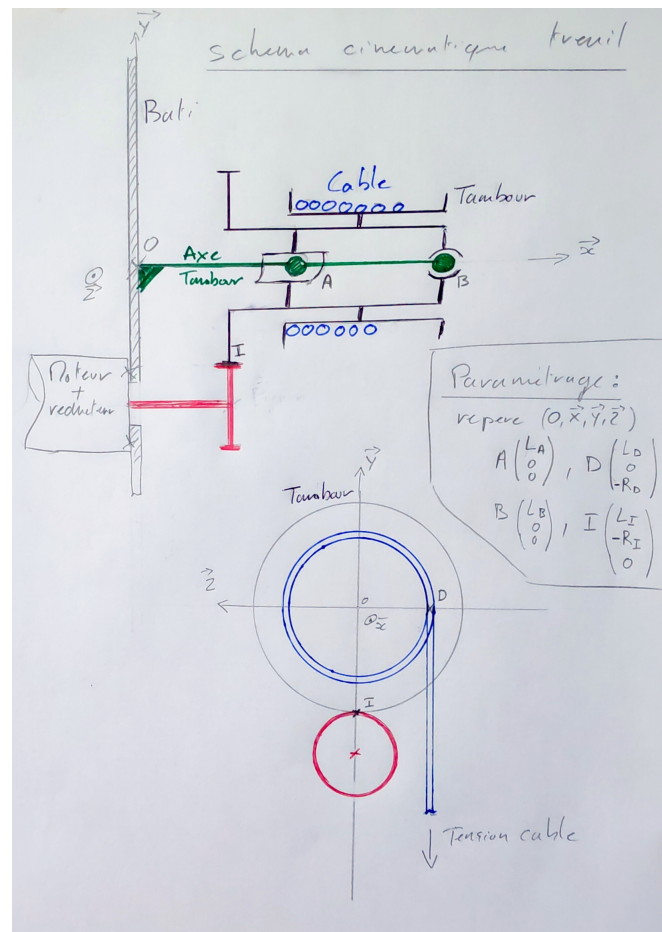 y
schema cinematique treuil
Bati
Cable
Tambour
O
Axe
Tambour
A
B
x
z
I
Moteur
+
reducteur
Paramétrage :
repere (O, x, y, z)
A (L_A 0 0), D (L_D 0 -R_D)
B (L_B 0 0), I (L_I -R_I 0)
y
Tambour
z
o
x
D
I
Tension cable